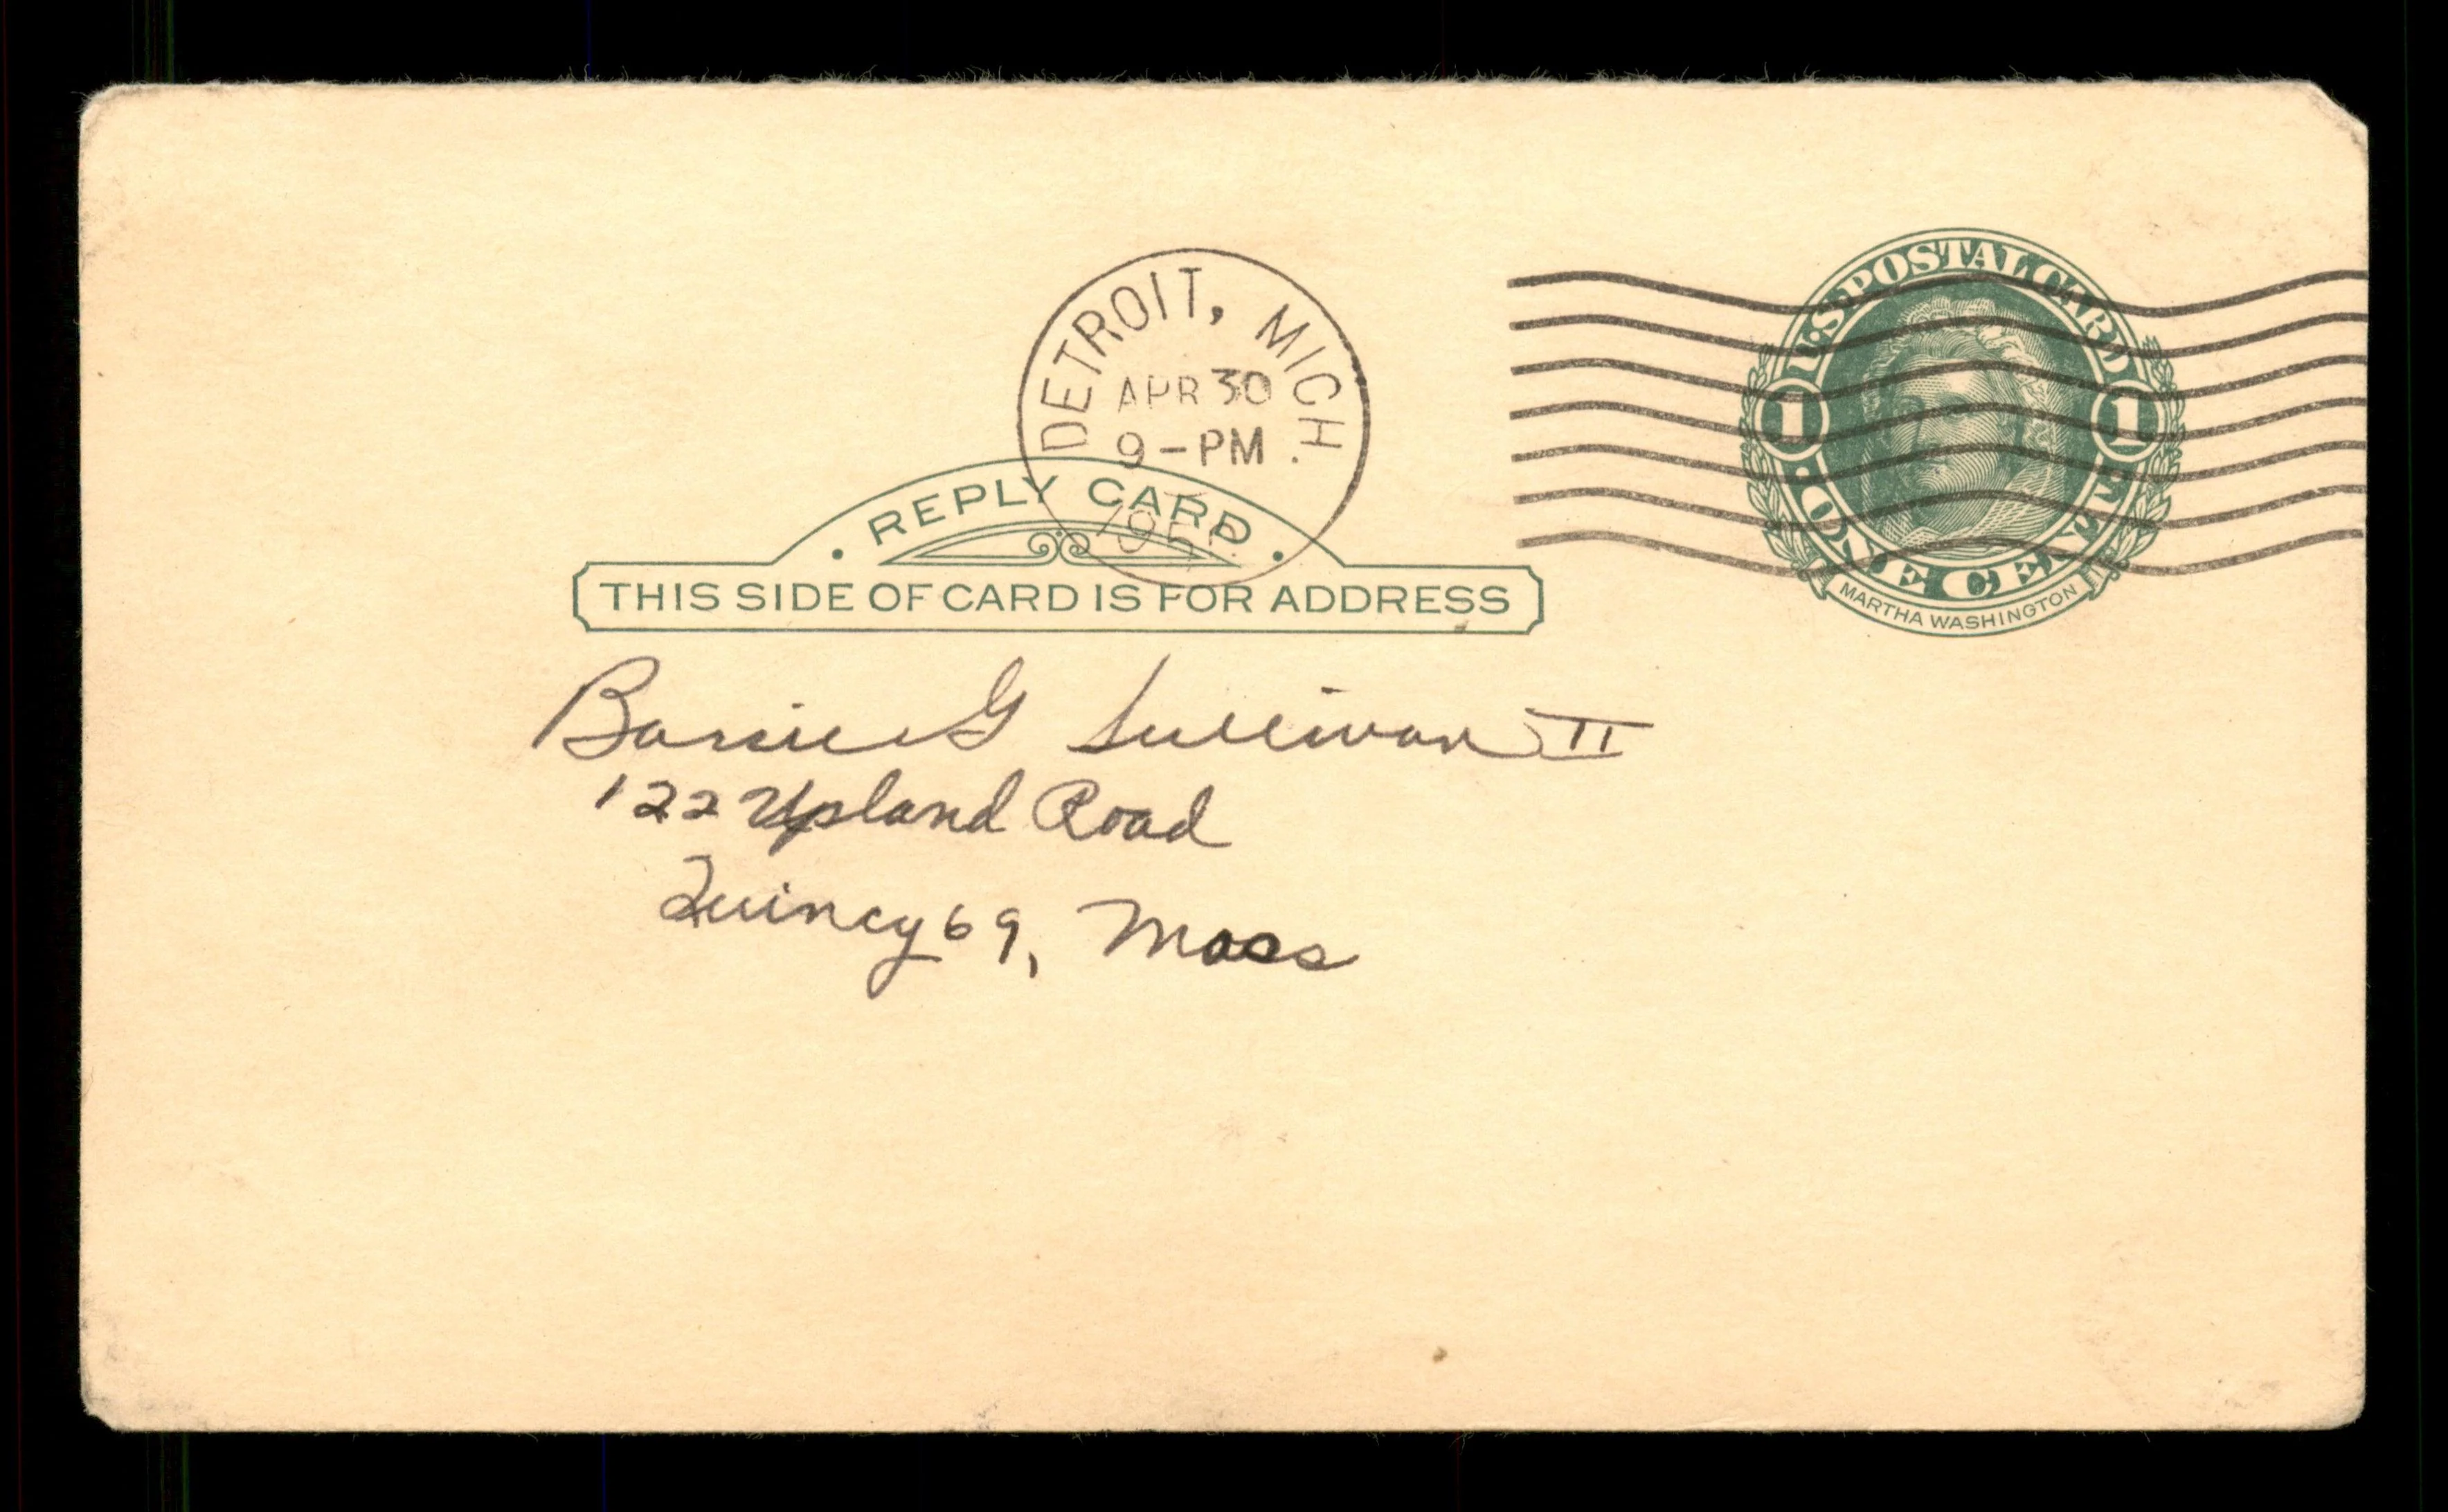 DETROIT, MICH.
APR 30
9-PM
U.S. POSTAL CARD
1 1
ONE CENT
MARTHA WASHINGTON
· REPLY CARD ·
THIS SIDE OF CARD IS FOR ADDRESS
Barrie G Sullivan II
122 Upland Road
Quincy 69, Mass